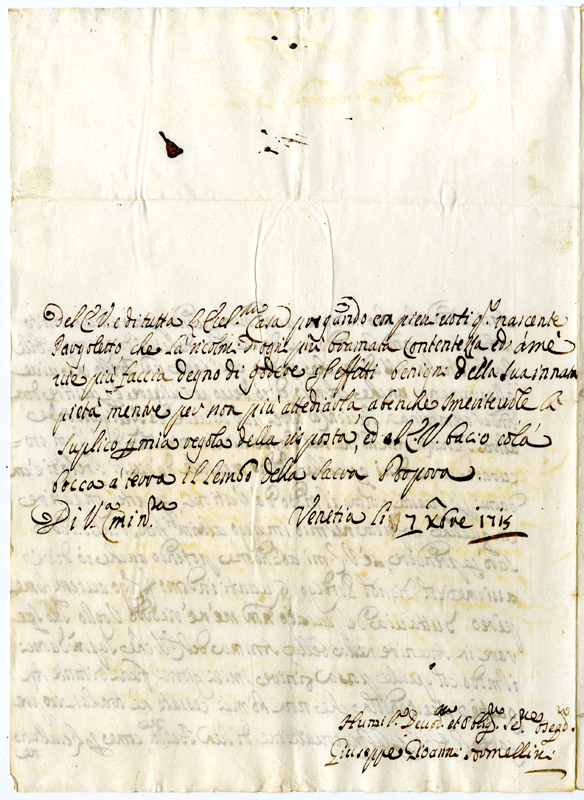 Del E. V. e di tutta l'Eccl.ma Casa pregando con pieni voti q.o nascente
Pargoletto che La ricolmi di ogni più bramata Contentezza ed à me
più faccia degno di godere gl'effetti benigni della Sua innata
pietà mentre per non più attediarla, abenche Smeritevole La
Suplico p mia regola della risposta, ed al E. V. bacio colà
bocca à terra il Lembo della Sacra Porpora.
Di V.a Emin.za Venetia li 7 Xbre 1715
Humil.o Devot.mo et Oblig.mo Se.re Osseq.mo
Giuseppe Gioanni Armellini